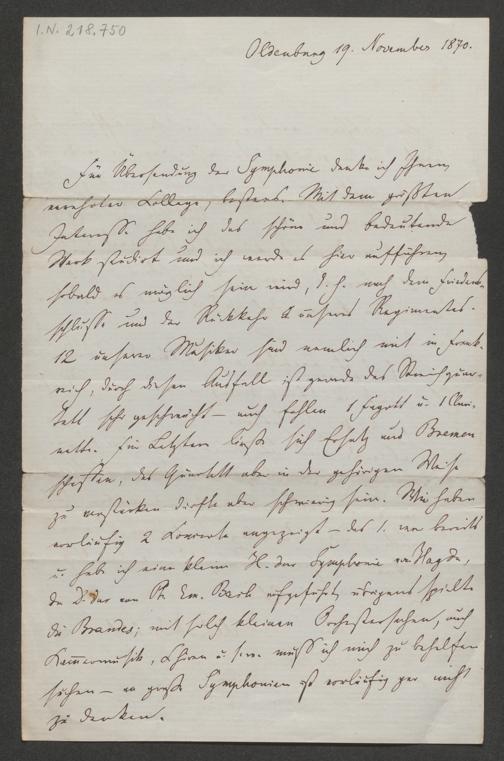 I.N. 218.750
Oldenburg 19. November 1870.
Für Übersendung der Symphonie danke ich Ihnen,
verehrter College, bestens. Mit dem größten
Interesse habe ich das schöne und bedeutende
Werk studirt und ich werde es hier aufführen
sobald es möglich sein wird, d. h. nach dem Friedens-
schlusse und der Rückkehr unseres Regimentes.
12 unserer Musiker sind nemlich mit in Frank-
reich, durch diesen Ausfall ist gerade das Streichquar-
tett sehr geschwächt – auch fehlen 1 Fagott u. 1 Clari-
nette. Für Letztere ließe sich Ersatz aus Bremen
schaffen, das Quartett aber in der gehörigen Weise
zu verstärken dürfte aber schwierig sein. Wir haben
vorläufig 2 Concerte angezeigt – das 1. war bereits
u. habe ich eine kleine Symphonie von Haydn,
die D dur von Ph. Em. Bach aufgeführt, übrigens spielte
die Brandes; mit solch kleinen Orchestersachen, auch
Kammermusik, Chören u.s.w. muß ich mich zu behelfen
suchen – an große Symphonien ist vorläufig gar nicht
zu denken.